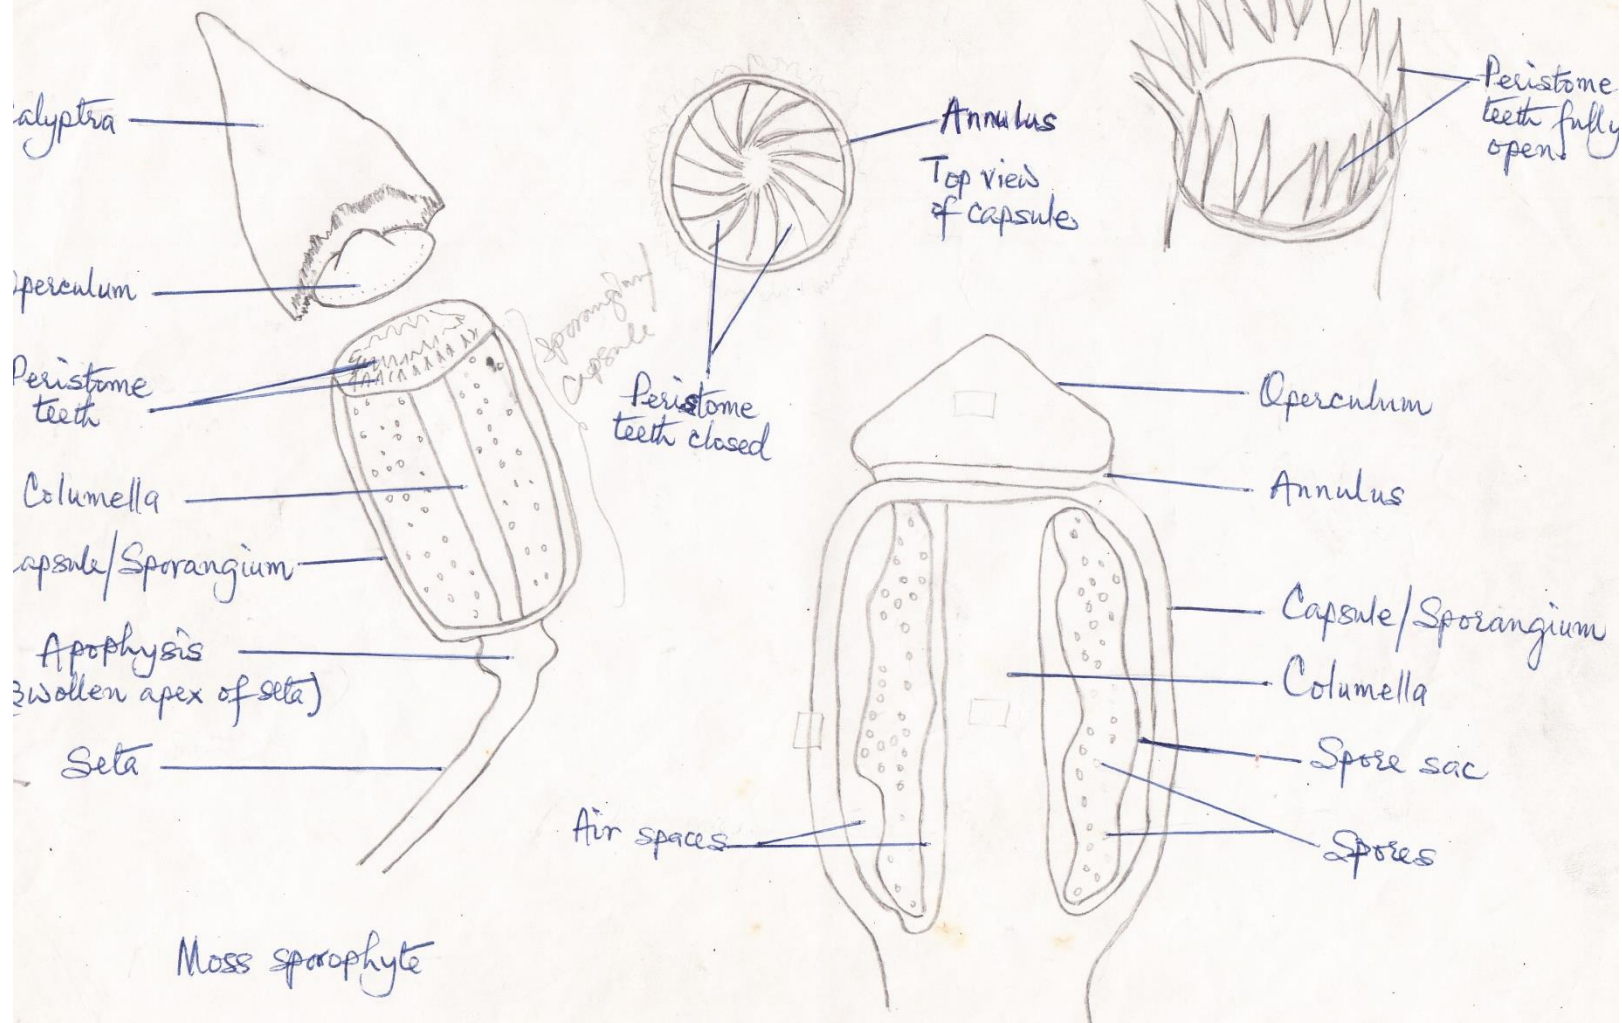 alyptra
perculum
Peristome
teeth
Columella
apsule/Sporangium
Apophysis
swollen apex of seta)
Seta
Moss sporophyte
Annulus
Top view
of capsule
Peristome
teeth closed
Sporangium/
capsule
Peristome
teeth fully
open
Operculum
Annulus
Capsule/Sporangium
Columella
Spore sac
Spores
Air spaces